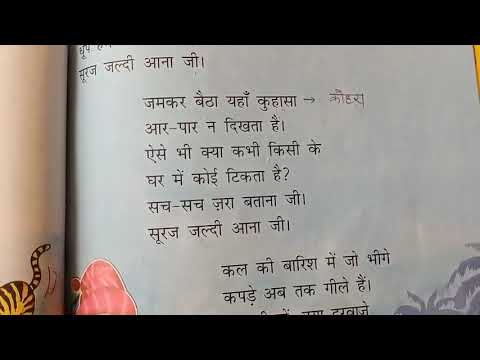 सूरज जल्दी आना जी।
जमकर बैठा यहाँ कुहासा → कौहरा
आर-पार न दिखता है।
ऐसे भी क्या कभी किसी के
घर में कोई टिकता है?
सच-सच ज़रा बताना जी।
सूरज जल्दी आना जी।
कल की बारिश में जो भीगे
कपड़े अब तक गीले हैं।
दरवाज़े